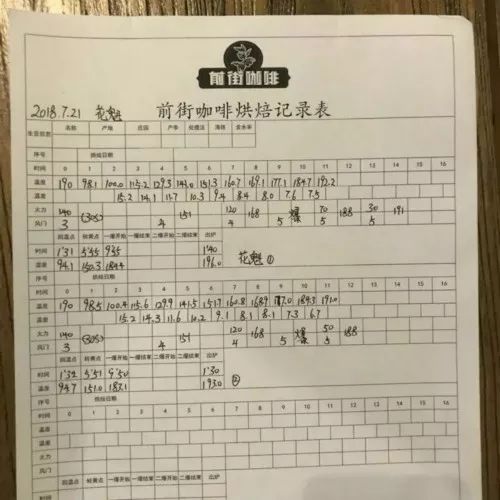 前街咖啡
2018.7.21 花魁 前街咖啡烘焙记录表
生豆信息 名称 产地 庄园 产季 处理法 海拔 含水率
序号 烘焙日期
时间 0 1 2 3 4 5 6 7 8 9 10 11 12 13 14 15 16
温度 190 98.1 100.0 115.2 129.3 141.0 151.3 160.7 169.1 177.1 184.7 192.2
温度 15.2 14.1 11.7 10.3 9.4 8.4 8.0 7.6 7.5
火力 140 (30s) 151 120 168 爆 70 188 30 191
风门 3 4 4 5 5 5
回温点 转黄点 一爆开始 一爆结束 二爆开始 二爆结束 出炉
时间 1'31 5'55 9'55 1'40
温度 94.1 150.3 184.4 196.0 花魁 ①
序号 烘焙日期
时间 0 1 2 3 4 5 6 7 8 9 10 11 12 13 14 15 16
温度 190 98.5 100.4 115.6 129.9 141.5 151.7 160.8 168.9 177.0 184.3 191.0
温度 15.2 14.3 11.6 10.2 9.1 8.1 8.1 7.3 6.7
火力 140 (30s) 151 120 168 爆 50 188
风门 3 4 4 5 5
回温点 转黄点 一爆开始 一爆结束 二爆开始 二爆结束 出炉
时间 1'32 5'51 9'50 1'30
温度 94.7 151.0 183.1 193.0 ②
序号 烘焙日期
时间 0 1 2 3 4 5 6 7 8 9 10 11 12 13 14 15 16
温度
温度
火力
风门
回温点 转黄点 一爆开始 一爆结束 二爆开始 二爆结束 出炉
时间
温度
序号 烘焙日期
时间 0 1 2 3 4 5 6 7 8 9 10 11 12 13 14 15 16
温度